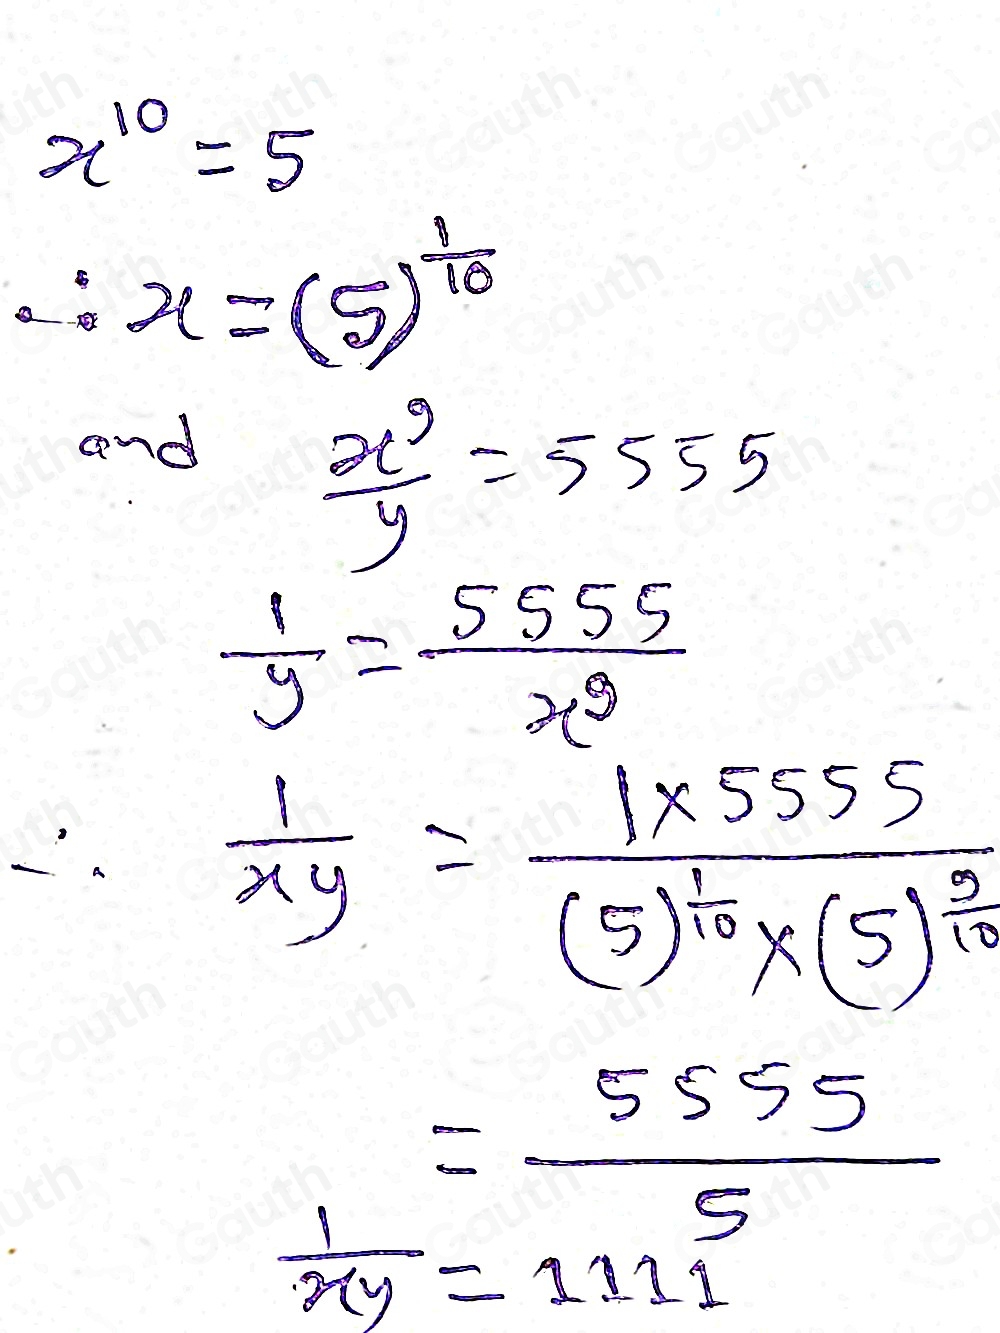 x^10 = 5
∴ x = (5)^(1/10)
and x^9/y = 5555
1/y = 5555/x^9
∴ 1/(xy) = (1×5555)/((5)^(1/10) × (5)^(9/10))
= 5555/5
1/(xy) = 1111